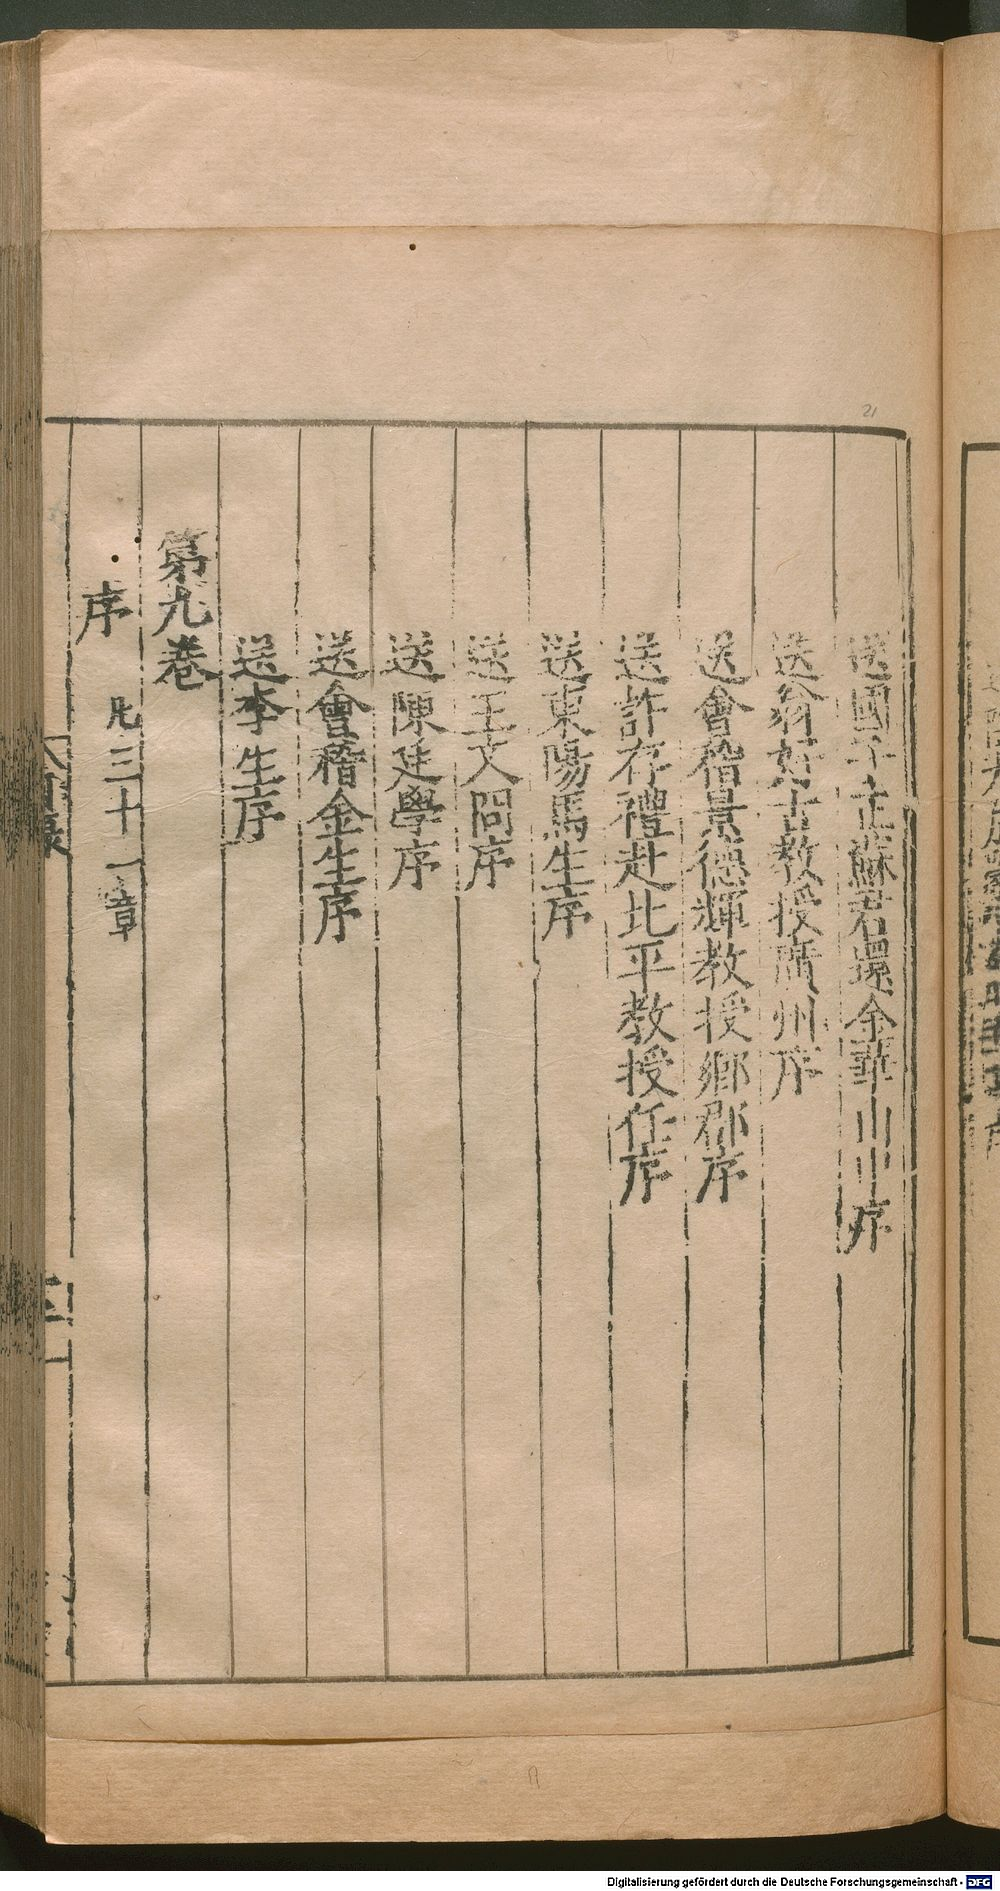 送國子正蘇君還金華山中序
送翁好古教授廣州序
送會稽景德輝教授鄉郡序
送許存禮赴北平教授任序
送東陽馬生序
送王文冏序
送陳廷學序
送會稽金生序
送李生序
第九卷
序 凡三十一章
21
Digitalisierung gefördert durch die Deutsche Forschungsgemeinschaft - DFG